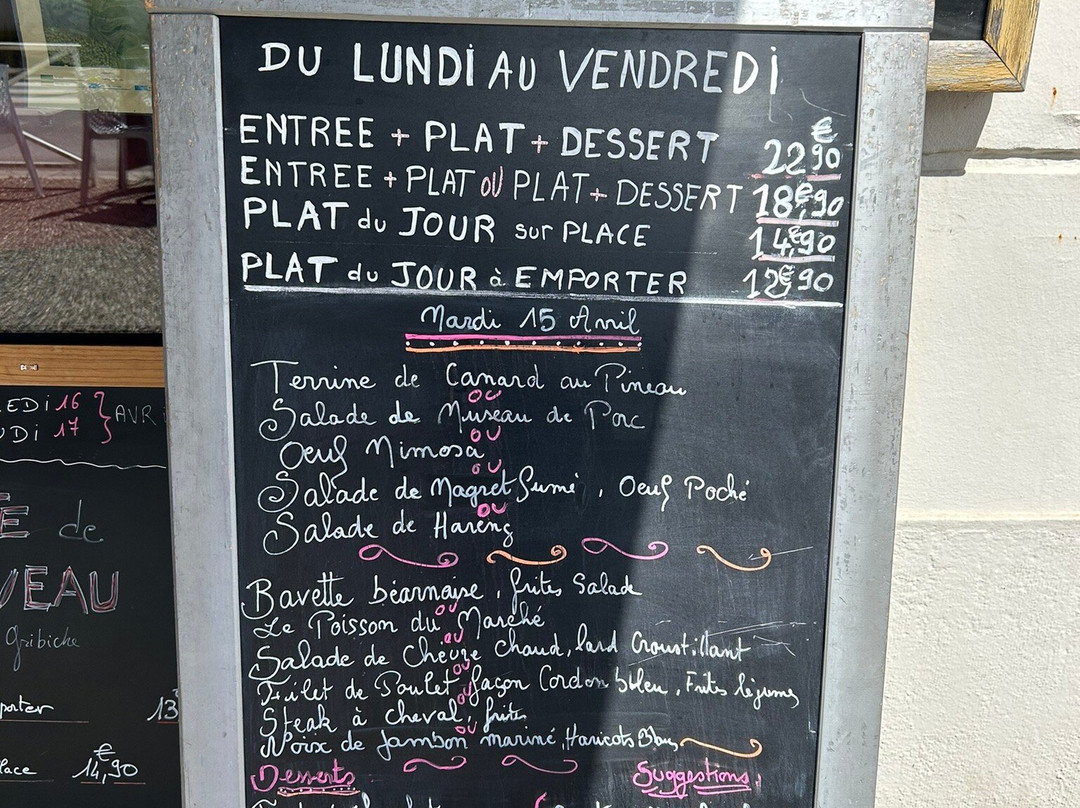 DU LUNDI AU VENDREDI
ENTREE + PLAT + DESSERT 22€90
ENTREE + PLAT OU PLAT + DESSERT 18€,90
PLAT du JOUR sur PLACE 14€,90
PLAT du JOUR à EMPORTER 12€,90
Mardi 15 Avril
Terrine de Canard au Pineau
ou
Salade de Museau de Porc
ou
Oeuf Mimosa
ou
Salade de Magret fumé, Oeuf Poché
ou
Salade de Hareng
Bavette béarnaise, frites Salade
ou
Le Poisson du Marché
ou
Salade de Chèvre Chaud, lard Croustillant
ou
Filet de Poulet façon Cordon bleu, Frites légumes
ou
Steak à cheval, frites
ou
Noix de Jambon mariné, Haricots
Desserts
Suggestions
EDI 16
DI 17 } AVR
E de
VEAU
Gribiche
porter 13
lace 14€,90